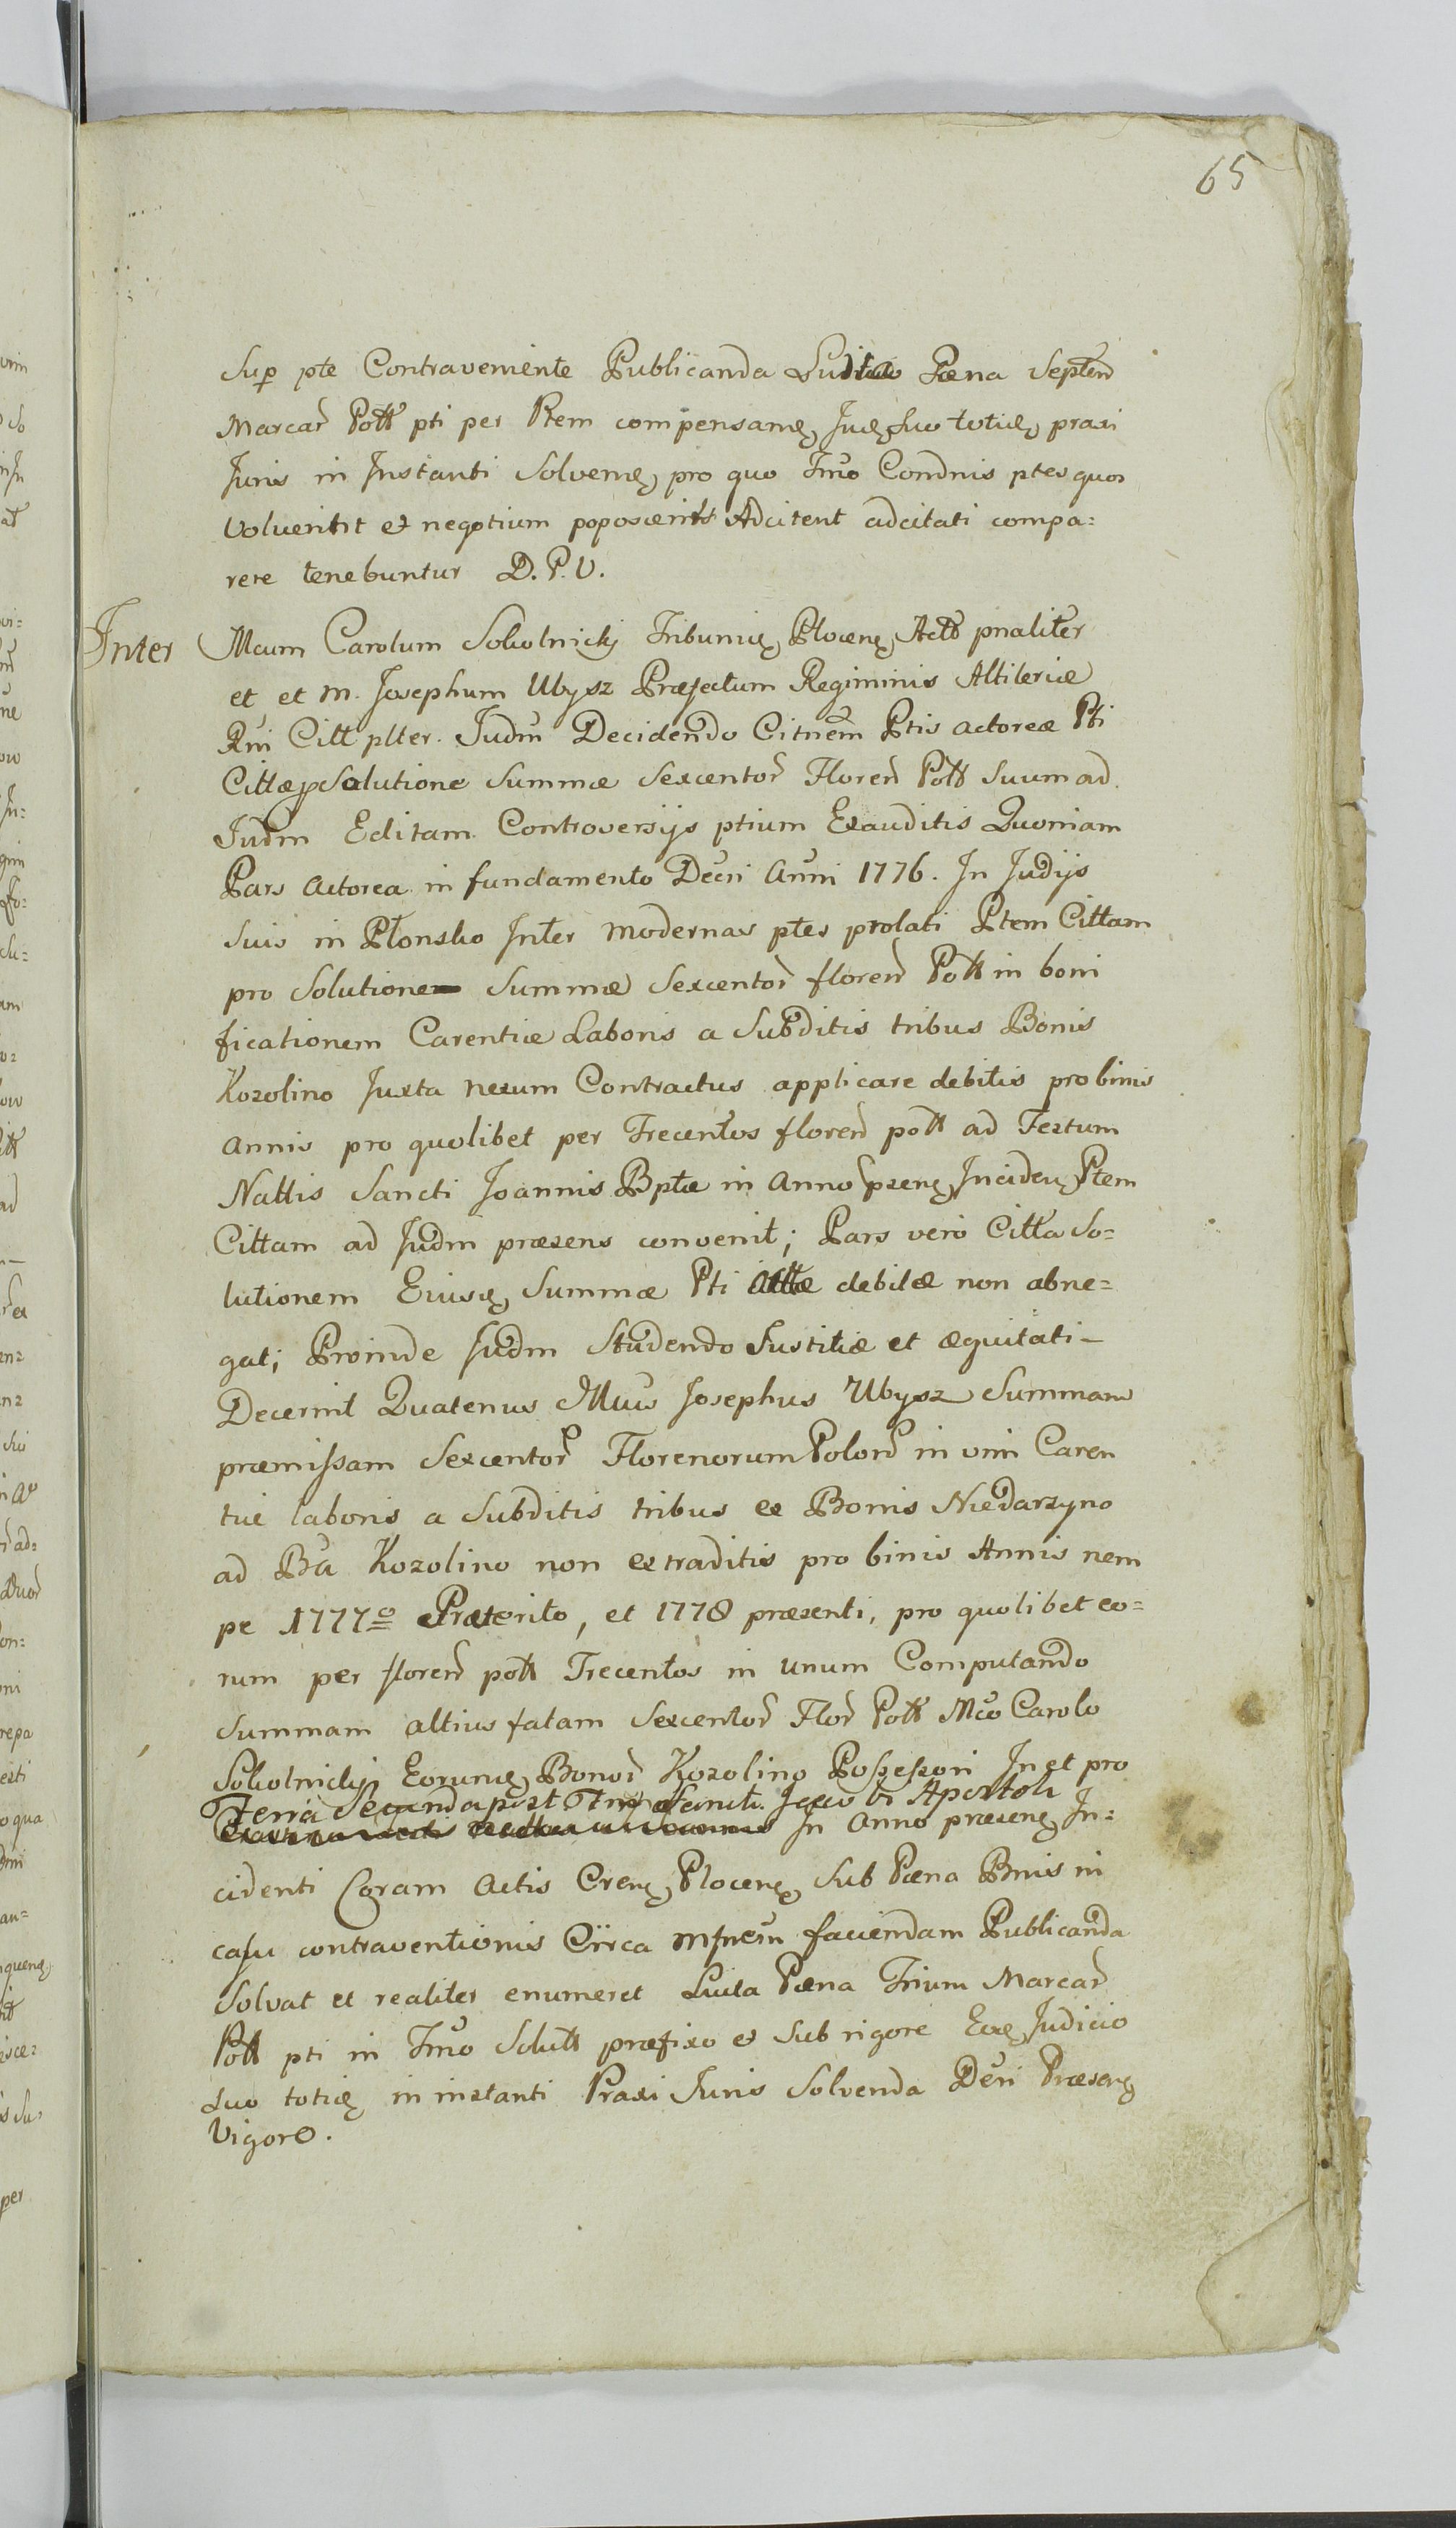 65
Sup pte Contraveniente Publicanda Luitio Pæna Septem
Marcar Poll pti per Ptem compensanda Judo Suo toties praxi
Juris in Instanti Solvenda pro quo Tmo Condnis ptes quos
Voluerint et negotium poposcerint Adcitent adcitati compa=
rere tenebuntur D. P. V.
Inter Mcum Carolum Sokolnicki Tribunid Plocen Actt pnaliter
et et M. Josephum Ubysz Præfectum Regiminis Altileriæ
Rni Citt plter. Judm Decidendo Citnem Ptis actoreæ Pti
Cittæ p Solutione Summæ Sexcentor Floren Poll Suum ad
Judm Editam Controversijs ptium Exauditis Quoniam
Pars actorea in fundamento Decri Anni 1776. In Judijs
Suis in Płonsko Inter modernas ptes prolati Ptem Cittam
pro Solutione Summæ Sexcentor floren Poll in boni
ficationem Carentiæ Laboris a Subditis tribus Bonis
Kozolino Juxta nexum Contractus applicare debitis pro binis
annis pro quolibet per Trecentos floren poll ad Festum
Nattis Sancti Joannis Bptæ in Anno præsen Inciden Ptem
Cittam ad Judm præsens convenit; Pars vero Citta So=
lutionem Eiusd Summæ Pti Acttæ debitæ non abne=
gat; Proinde Judm Studendo Justitiæ et æquitati-
Decernit Quatenus Mcus Josephus Ubysz Summam
præmissam Sexcentor Florenorum Polon in vim Caren
tiæ laboris a Subditis tribus ex Bonis Niedarzyno
ad Bna Kozolino non extraditis pro binis Annis nem
pe 1777o Præterito, et 1778 præsenti, pro quolibet eo=
rum per floren poll Trecentos in unum Computando
Summam altius fatam Sexcentor Flor Poll Mco Carolo
Sokolnicki Eorund Bonor Kozolino Possessori In et pro
Feria Secunda post Fm Sancti Jacobi Apostoli
In Anno præsen In=
cidenti Coram Actis Cren Plocen Sub Pæna Bnis in
casu contraventionis Circa mfnem faciendam Publicanda
Solvat et realiter enumeret Luita Pæna Trium Marcar
Poll pti in Tmo Solutt præfixo et Sub rigore Eod Judicio
Suo toties in instanti Praxi Juris Solvenda Decri Præsen
Vigore.